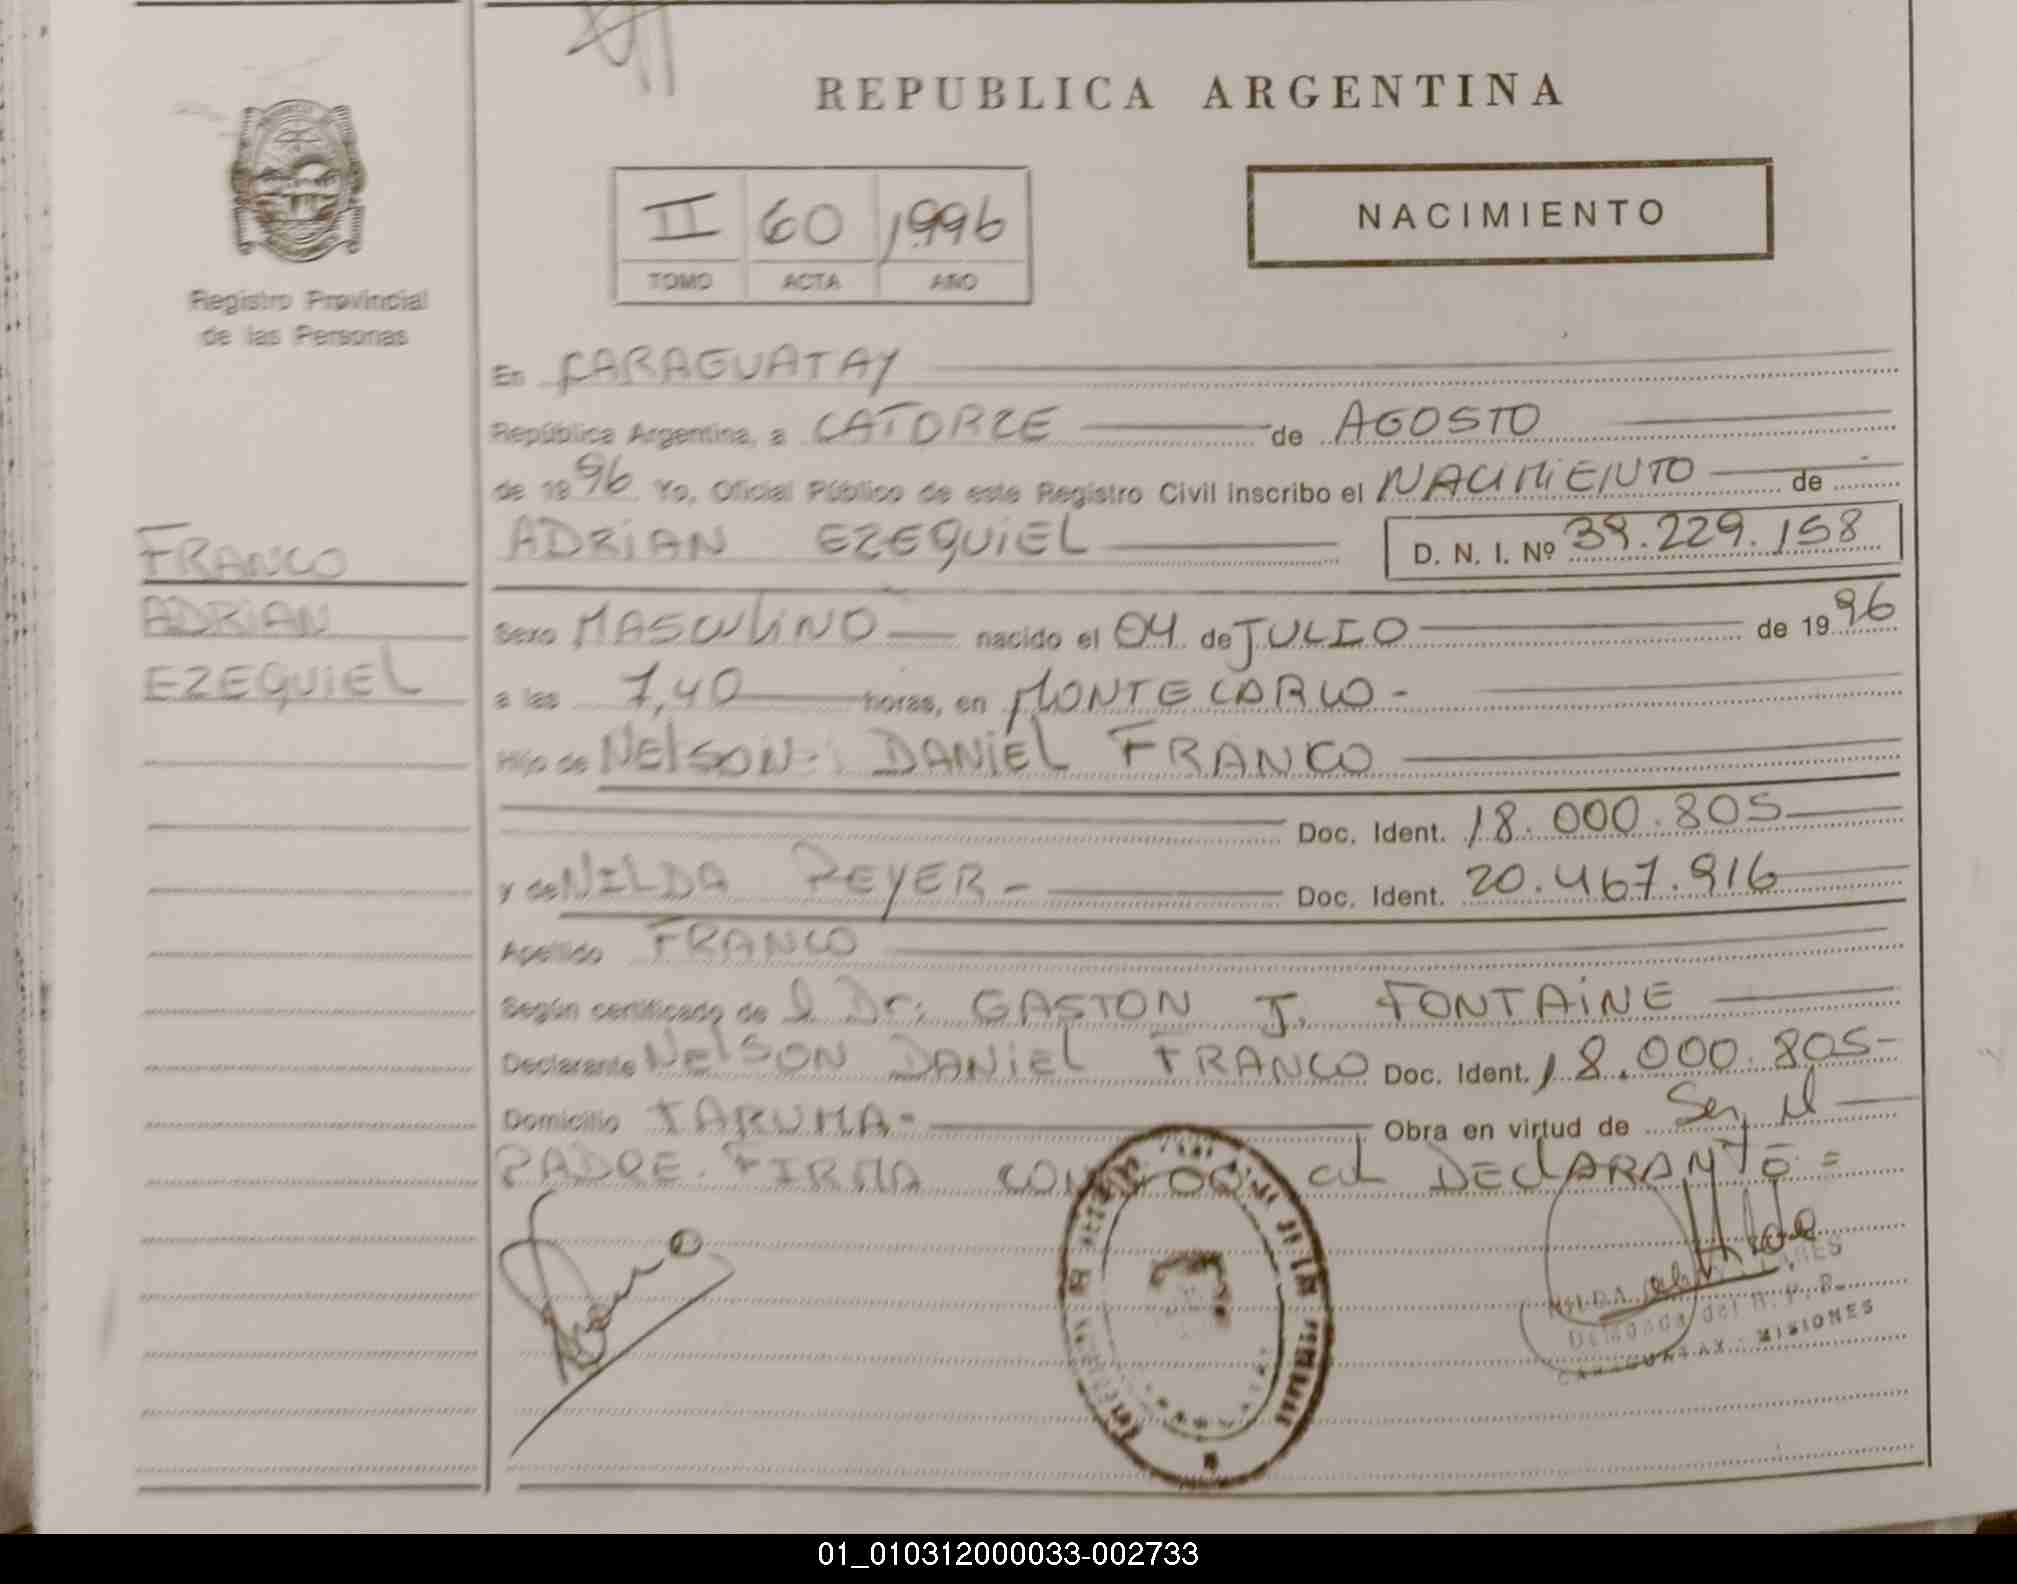 REPUBLICA ARGENTINA
II 60 1996
TOMO ACTA AÑO
NACIMIENTO
Registro Provincial
de las Personas
En CARAGUATAY
República Argentina, a CATORZE de AGOSTO
de 1996 Yo, Oficial Público de este Registro Civil inscribo el NACIMIENTO de
ADRIAN EZEQUIEL D. N. I. Nº 39.229.158
FRANCO
ADRIAN
EZEQUIEL
Sexo MASCULINO nacido el 04 de JULIO de 1996
a las 7,40 horas, en MONTECARLO -
Hijo de NELSON DANIEL FRANCO
Doc. Ident. 18.000.805
y de NILDA PEYER - Doc. Ident. 20.467.916
Apellido FRANCO
Según certificado de l Dr: GASTON J. FONTAINE
Declarante NELSON DANIEL FRANCO Doc. Ident. 18.000.805-
Domicilio TARUMA- Obra en virtud de Ser el
PADRE. FIRMA CONMIGO el DECLARANTE =
MISIONES
01_010312000033-002733